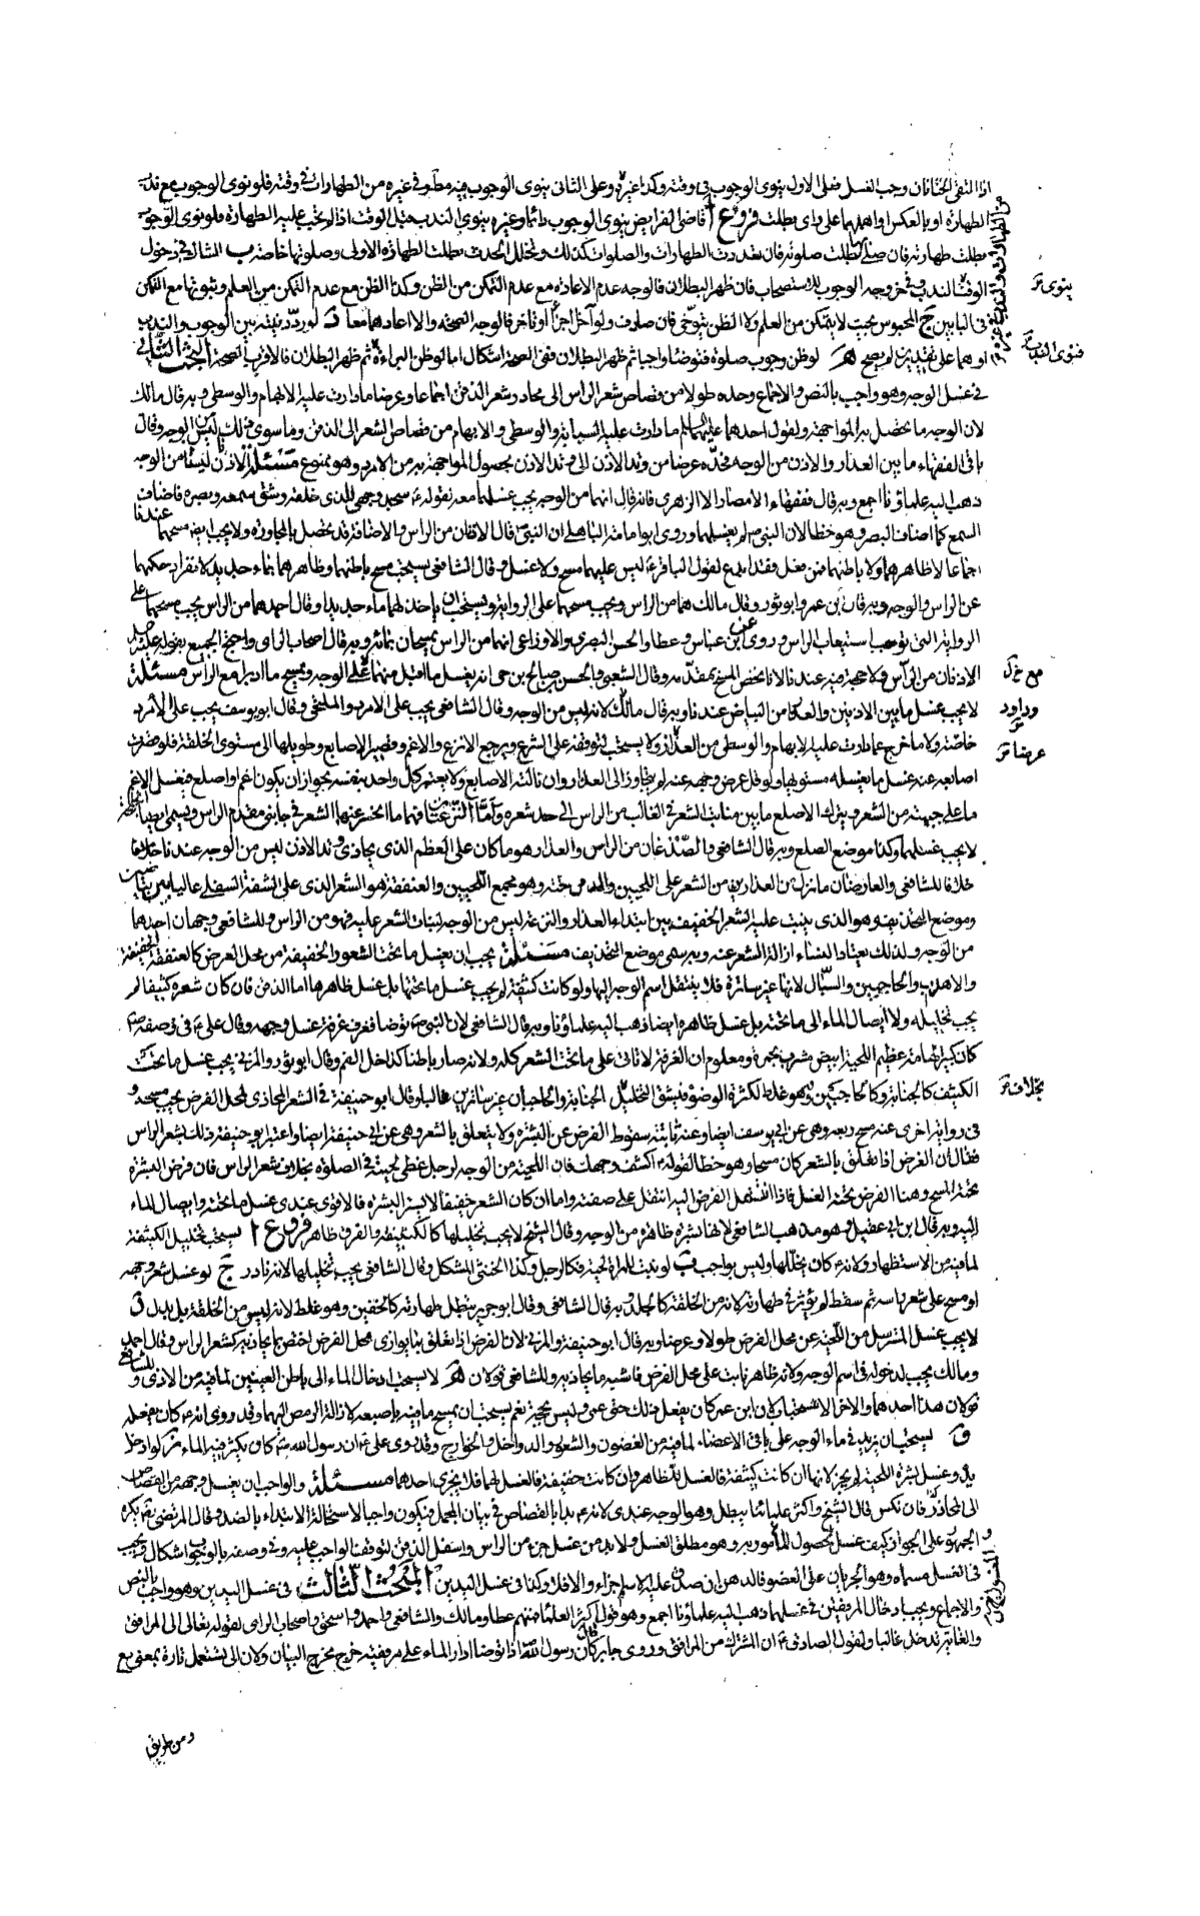 اذا التقى الختانان وجب الغسل فعلى الاول ينوى الوجوب فى وقته وكذا غيره وعلى الثانى ينوى الوجوب فيه مطلقا وفى غيره من الطهارات فى وقته فلو نوى الوجوب مع ندبية
الطهارة او بالعكس او اهملهما على راى بطلت فروع ا قاضى الفرايض ينوى الوجوب دائما وغيره ينوى الندب قبل الوقت اذا لم يجب عليه الطهارة فلو نوى الوجوب
بطلت طهارته فان صلى بطلت صلوته فان تعددت الطهارات والصلوات كذلك وتخلل الحدث بطلت الطهارة الاولى وصلوتها خاصة ب الشاك فى دخول
الوقت الندب وفى خروجه الوجوب للاستصحاب فان ظهر البطلان فالوجه عدم الاعادة مع عدم التمكن من الظن وكذا الظن مع عدم التمكن من العلم وثبوتها مع التمكن
فى البابين ج المحبوس بحيث لا يتمكن من العلم ولا الظن يتوخى فان صادف ولو آخر اجزأ او تاخر فالوجه الصحة والا اعادهما معا د لو ردد نيته بين الوجوب والندب
او هما على تقديرين لم يصح ه لو ظن وجوب صلوة فتوضا واجبا ثم ظهر البطلان ففى الصحة اشكال اما لو ظن البراءة ثم ظهر البطلان فالاقرب الصحة البحث الثانى
فى غسل الوجه وهو واجب بالنص والاجماع وحده طولا من قصاص شعر الراس الى محادر شعر الذقن اجماعا وعرضا ما دارت عليه الابهام والوسطى وبه قال مالك
لان الوجه ما تحصل به المواجهة ولقول احدهما عليهما السلم ما دارت عليه السبابة والوسطى والابهام من قصاص الشعر الى الذقن وما سوى ذلك ليس الوجه وقال
باقى الفقهاء ما بين العذار والاذن من الوجه فحده عرضا من وتد الاذن الى وتد الاذن لحصول المواجهة به من الامرد وهو ممنوع مسئلة الاذنان ليستا من الوجه
ذهب اليه علماؤنا اجمع وبه قال فقهاء الامصار الا الزهرى فانه قال انهما من الوجه يجب غسلهما معه لقوله ع سجد وجهى للذى خلقه وشق سمعه وبصره فاضاف
السمع كما اضاف البصر وهو خطا لان النبى ص لم يغسلهما وروى ابو امامة الباهلى ان النبى ص قال الاذنان من الراس والاضافة قد تحصل بالمجاورة ولا يجب ايضا مسحهما عندنا
اجماعا لا ظاهرهما ولا باطنهما فمن فعل فقد ابدع لقول الباقر ع ليس عليهما مسح ولا غسل وقال الشافعى يستحب مسح باطنهما وظاهرهما بماء جديد لانفراد حكمهما
عن الراس والوجه وبه قال ابن عمر وابو ثور وقال مالك هما من الراس ويجب مسحهما على الرواية ويستحب ان ياخذ لهما ماء جديدا وقال احمد هما من الراس يجب مسحهما على
الرواية التى توجب استيعاب الراس وروى عن ابن عباس وعطا والحسن البصرى والاوزاعى انهما من الراس يمسحان بمائه وبه قال اصحاب الراى واحتج الجميع بقوله عليه السلم
الاذنان من الراس ولا حجة فيه عندنا لانا نخص المسح بمقدمه وقال الشعبى والحسن بن صالح بن حى انه يغسل ما اقبل منهما على الوجه ويمسح ما ادبر مع الراس مسئلة
لا يجب غسل ما بين الاذنين والعذار من البياض عندنا وبه قال مالك لانه ليس من الوجه وقال الشافعى يجب على الامرد والملتحى وقال ابو يوسف يجب على الامرد
خاصة ولا ما خرج عما دارت عليه الابهام والوسطى من العذار ولا يستحب لتوقفه على الشرع ويرجع الانزع والاغم وقصير الاصابع وطويلها الى مستوى الخلقة فلو قصرت
اصابعه عنه غسل ما يغسله مستويها ولو فضل عرض وجهه عنه لم يتجاوز الى العذار وان نالته الاصابع ولا يعتبر كل واحد بنفسه لجواز ان يكون اغم او اصلع فيغسل الاغم
ما على جبهته من الشعر ويترك الاصلع ما بين منابت الشعر فى الغالب من الراس الى حد شعره واما النزعتان وهما ما انحسر عنهما الشعر فى جانبى مقدم الراس ويسمى ايضا الجلحة
لا يجب غسلهما وكذا موضع الصلع وبه قال الشافعى والصدغان من الراس والعذار هو ما كان على العظم الذى يحاذى وتد الاذن ليس من الوجه عندنا خلافا
خلافا للشافعى والعارضان ما نزل عن العذارين من الشعر على اللحيين والذقن تحته وهو مجمع اللحيين والعنفقة هو الشعر الذى على الشفة السفلى عاليا بين بياضين
وموضع التحذيف وهو الذى ينبت عليه الشعر الخفيف بين ابتداء العذار والنزعة ليس من الوجه لنبات الشعر عليه فهو من الراس وللشافعى وجهان احدهما
من الوجه ولذلك يعتاد النساء ازالة الشعر عنه وبه سمى موضع التحذيف مسئلة يجب ان يغسل ما تحت الشعور الخفيفة من محل الفرض كالعنفقة الخفيفة
والاهداب والحاجبين والسبال لانها غير ساترة فلا ينتقل اسم الوجه اليها ولو كانت كثيفة لم يجب غسل ما تحتها بل غسل ظاهرها اما الذقن فان كان شعره كثيفا لم
يجب تخليله ولا ايصال الماء الى ما تحته بل غسل ظاهره ايضا ذهب اليه علماؤنا وبه قال الشافعى لان النبى ص توضا فغرف غرفة غسل وجهه وقال على ع فى وصفه ص
كان كبير الهامة عظيم اللحية ابيض مشرب بحمرة ومعلوم ان الغرفة لا تاتى على ما تحت الشعر كله ولانه صار باطنا كداخل الفم وقال ابو ثور والمزنى يجب غسل ما تحت
الكثيف كالجنابة وكالحاجبين وهو غلط لكثرة الوضوء فيشق التخليل بخلاف الجنابة والحاجبان غير ساترين غالبا وقال ابو حنيفة فى الشعر المحاذى لمحل الفرض يجب مسحه و
فى رواية اخرى عنه مسح ربعه وهى عن ابى يوسف ايضا وعنه ثانية سقوط الفرض عن البشرة ولا يتعلق بالشعر وهى عن ابى حنيفة ايضا واعتبر ابو حنيفة ذلك بشعر الراس
فقال ان الفرض اذا تعلق بالشعر كان مسحا وهو خطا لقوله ع اكشف وجهك فان اللحية من الوجه لرجل غطى لحيته فى الصلوة بخلاف شعر الراس فان فرض البشرة
تحته المسح وهنا الفرض تحته الغسل فاذا انتقل الفرض اليه انتقل على صفته واما ان كان الشعر خفيفا لا يستر البشرة فالاقوى عندى غسل ما تحته وايصال الماء
اليه وبه قال ابن ابى عقيل وهو مذهب الشافعى لانها بشرة ظاهرة من الوجه وقال الشيخ لا يجب تخليلها كالكثيفة والفرق ظاهر فروع ا يستحب تخليل الكثيفة
لما فيه من الاستظهار ولانه ع كان يخللها وليس بواجب ب لو نبت للمراة لحية فكالرجل وكذا الخنثى المشكل وقال الشافعى يجب تخليلها لانه نادر ج لو غسل شعر وجهه
او مسح على شعر راسه ثم سقط لم يؤثر فى طهارته لانه من الخلقة كالجلد وبه قال الشافعى وقال ابو جرير تبطل طهارته كالخفين وهو غلط لانه ليس من الخلقة بل بدل د
لا يجب غسل المسترسل من اللحية عن محل الفرض طولا وعرضا وبه قال ابو حنيفة والمزنى لان الفرض اذا تعلق بما يوازى محل الفرض اختص بما يحاذيه كشعر الراس وقال احمد
ومالك يجب لدخوله فى اسم الوجه ولانه ظاهر نابت على محل الفرض فاشبه ما يحاذيه وللشافعى قولان ه لا يستحب ادخال الماء الى باطن العينين لما فيه من الاذى وللشافعى
قولان هذا احدهما والاخر الاستحباب لان ابن عمر كان يفعل ذلك حتى عمى وليس بحجة نعم يستحب ان يمسح ماقيه باصبعه لازالة الرمص اليهما وقد روى انه ع كان يفعله
و يستحب ان يزيد فى ماء الوجه على باقى الاعضاء لما فيه من الغضون والشعور والدواخل والخوارج وقد روى على ع ان رسول الله ص كان يكثر فيه الماء ز لو ادخل
يده وغسل بشرة اللحية لم يجز لانها ان كانت كثيفة فالغسل للظاهر وان كانت خفيفة فالغسل لهما فلا يجزى احدهما مسئلة والواجب ان يغسل وجهه من القصاص
الى المحادر فان نكس قال الشيخ واكثر علمائنا يبطل وهو الوجه عندى لانه ع بدا بالقصاص فى بيان المجمل فيكون واجبا لاستحالة الابتداء بالضد وقال المرتضى يكره
والجمهور على الجواز كيف غسل لحصول المامور به وهو مطلق الغسل ولا بد من غسل جزء من الراس واسفل الذقن لتوقف الواجب عليه وفى وصفه بالوجوب اشكال ويجب
فى الغسل مسماه وهو الجريان على العضو فالدهن ان صدق عليه الاسم اجزاء والا فلا وكذا فى غسل اليدين البحث الثالث فى غسل اليدين وهو واجب بالنص
والاجماع ويجب ادخال المرفقين فى غسلهما ذهب اليه علماؤنا اجمع وهو قول اكثر العلماء منهم عطا ومالك والشافعى واحمد واسحق واصحاب الراى لقوله تعالى الى المرافق
والغاية تدخل غالبا ولقول الصادق ع ان المنزل من المرافق وروى جابر قال كان رسول الله ص اذا توضا ادار الماء على مرفقيه خرج مخرج البيان ولان الى تستعمل تارة بمعنى مع
ينوى تر
مع خ ل
وداود
عرضا تر
بخلاف تر
ومن طريق